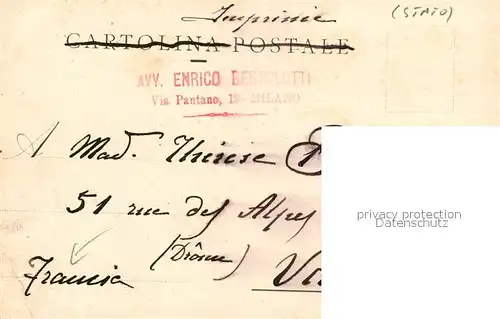 Imprimée
(STATO)
CARTOLINA POSTALE
AVV. ENRICO BERTOLOTTI
Via Pantano, MILANO
A Mad. Thérèse
51 rue des Alpes
(Drôme)
Francia
privacy protection
Datenschutz